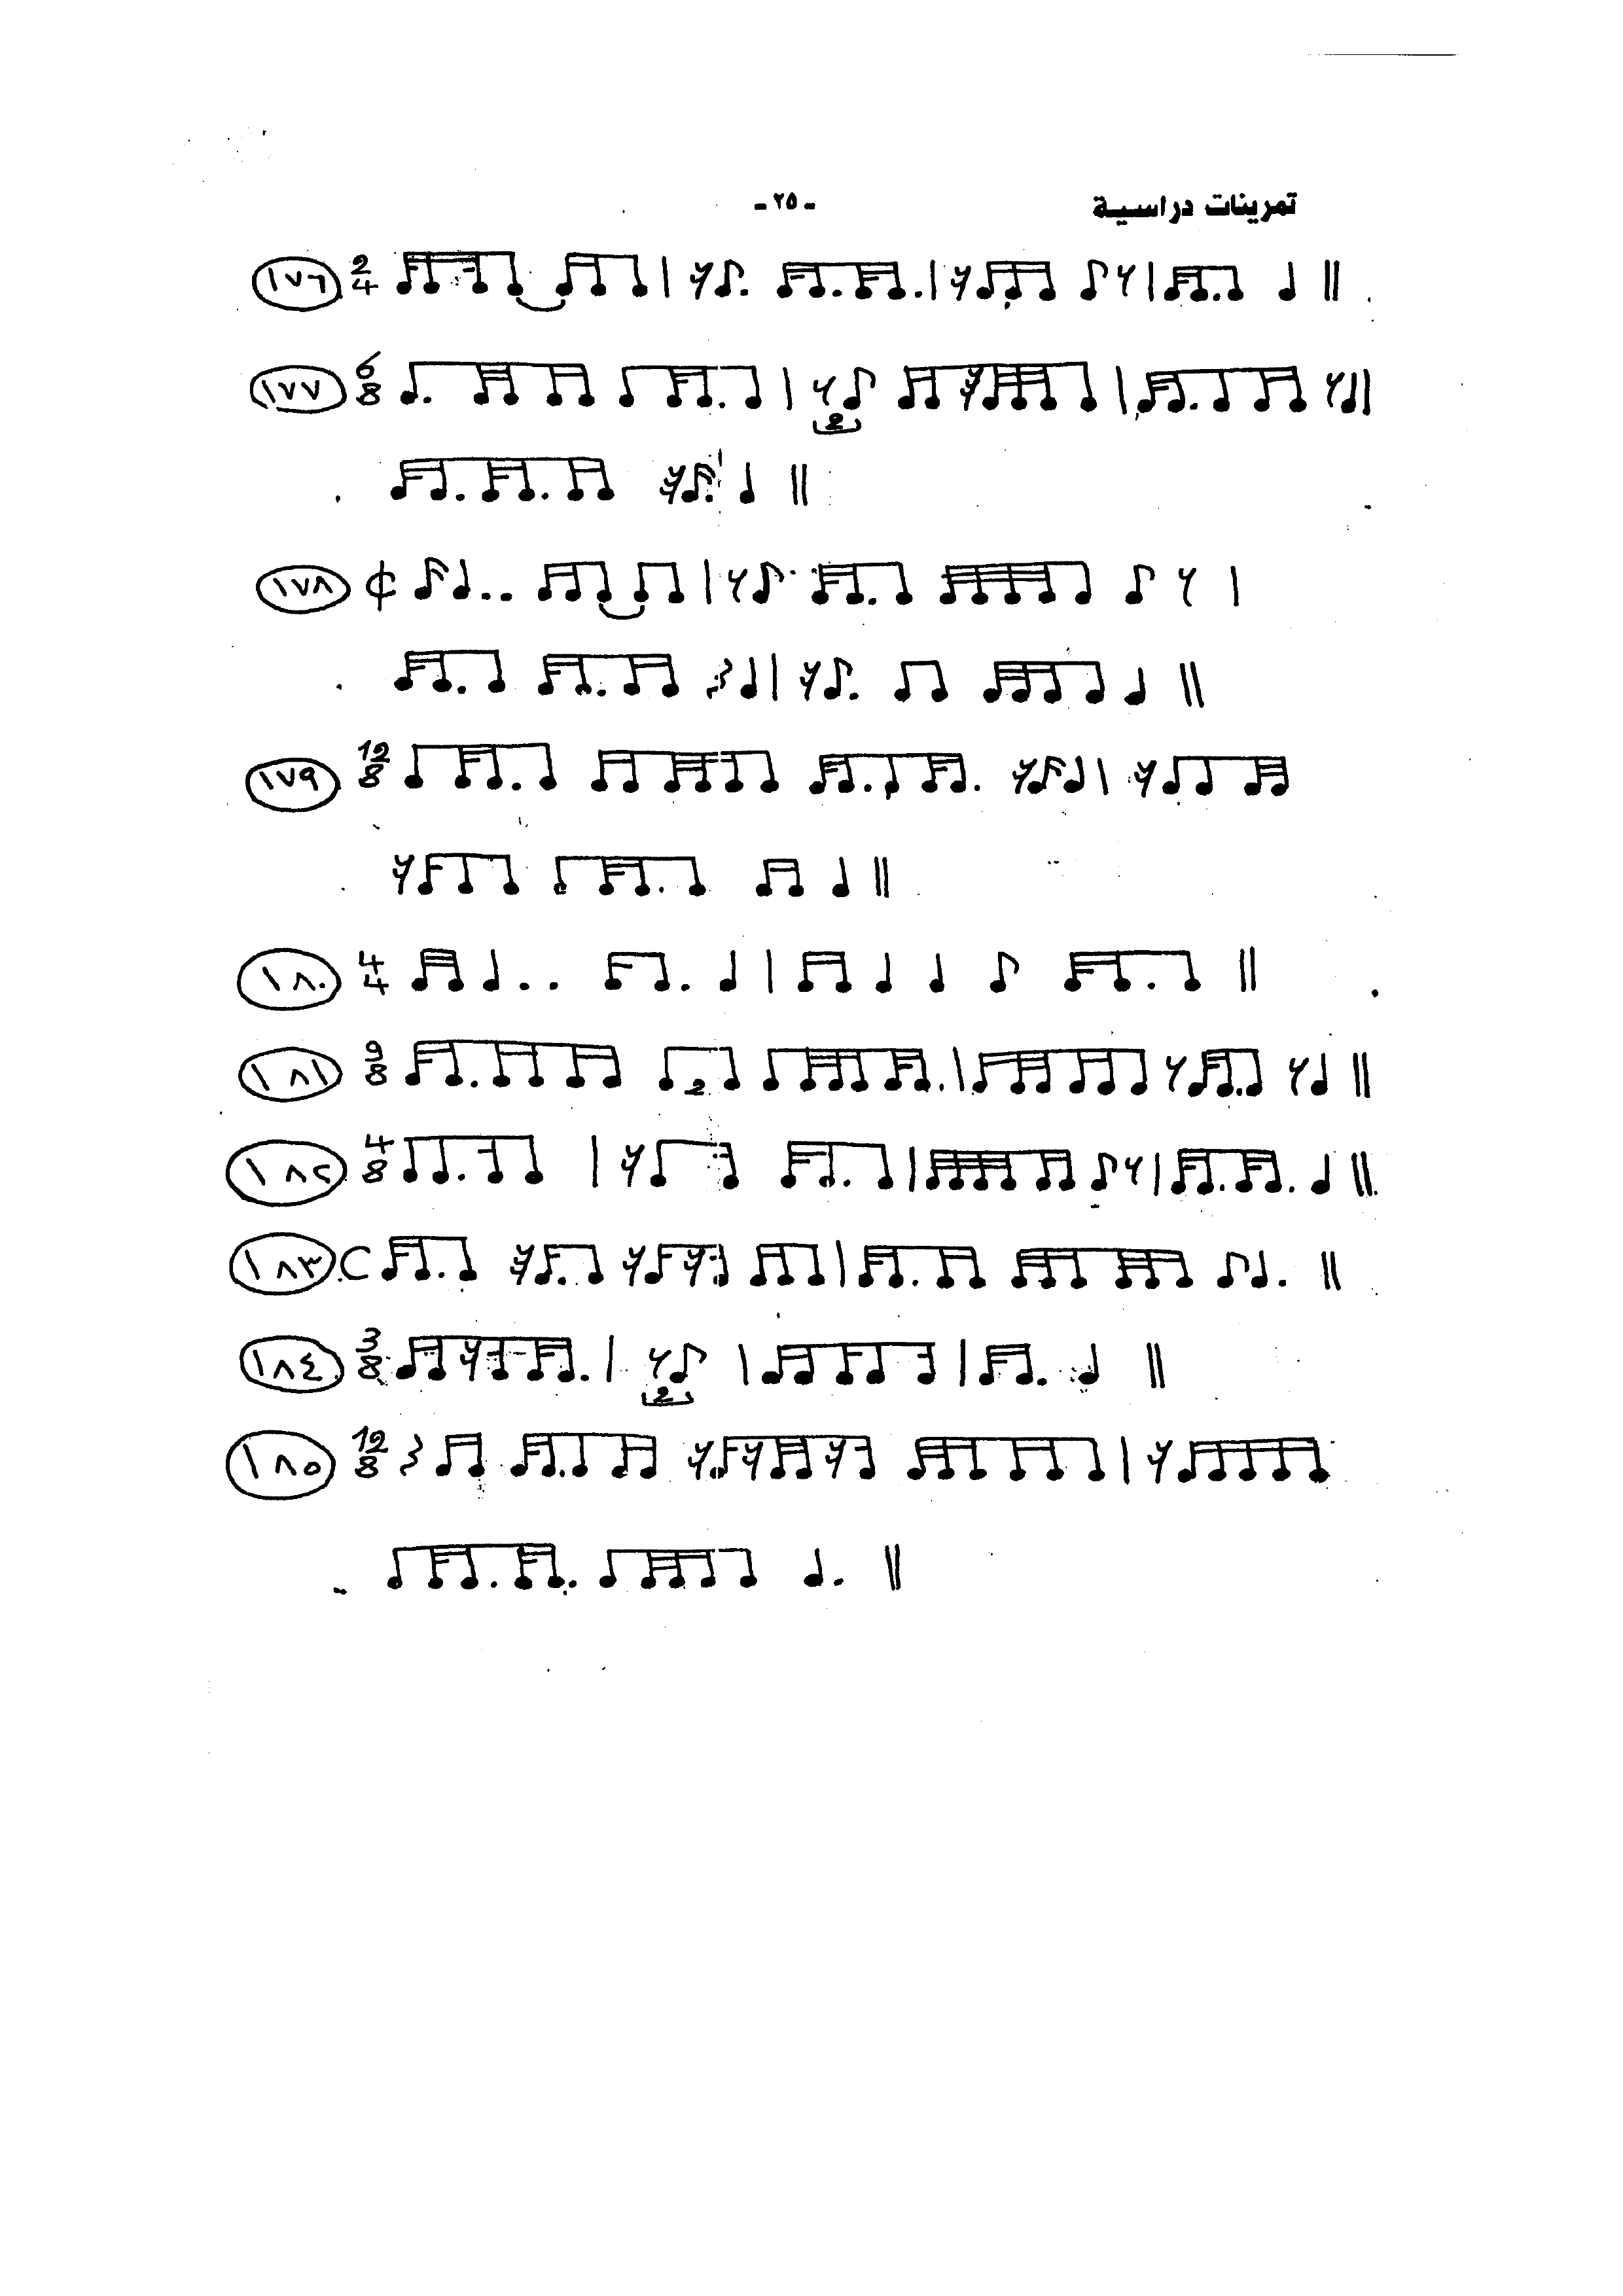 تمرينات دراسية - ٢٥ -
١٧٦ 2 4
١٧٧ 6 8
2
١٧٨
١٧٩ 12 8
١٨٠ 4 4
١٨١ 9 8 2
١٨٢ 4 8
١٨٣ C
١٨٤ 3 8
2
١٨٥ 12 8